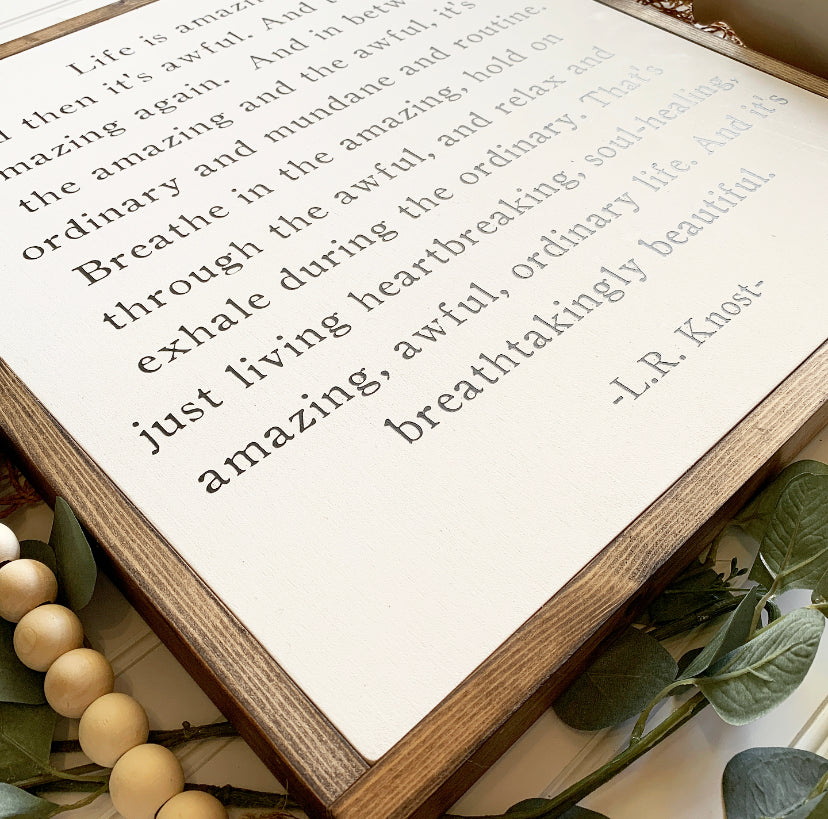 Life is amazin
then it's awful. And t
mazing again. And in betw
the amazing and the awful, it's
ordinary and mundane and routine.
Breathe in the amazing, hold on
through the awful, and relax and
exhale during the ordinary. That's
just living heartbreaking, soul-healing,
amazing, awful, ordinary life. And it's
breathtakingly beautiful.
-L.R. Knost-